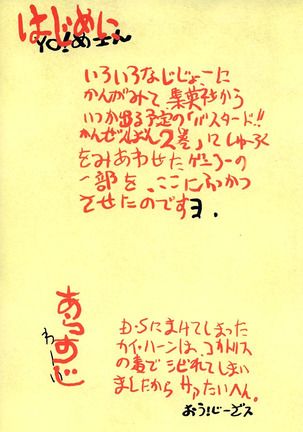 はじめに
いろいろなじじょーに
かんがみて集英社から
いつか出る予定の「バスタード!!
かんぜんばん2巻」にしゅーろく
をみあわせたゲンコーの
一部を、ここにふっかつ
させたのですヨ.
あらすじ
わーい
D・Sにまけてしまった
カイ・ハーンは、コカトリス
の毒でシビれてしまい
ましたからサァたいへん。
おう!じーざス